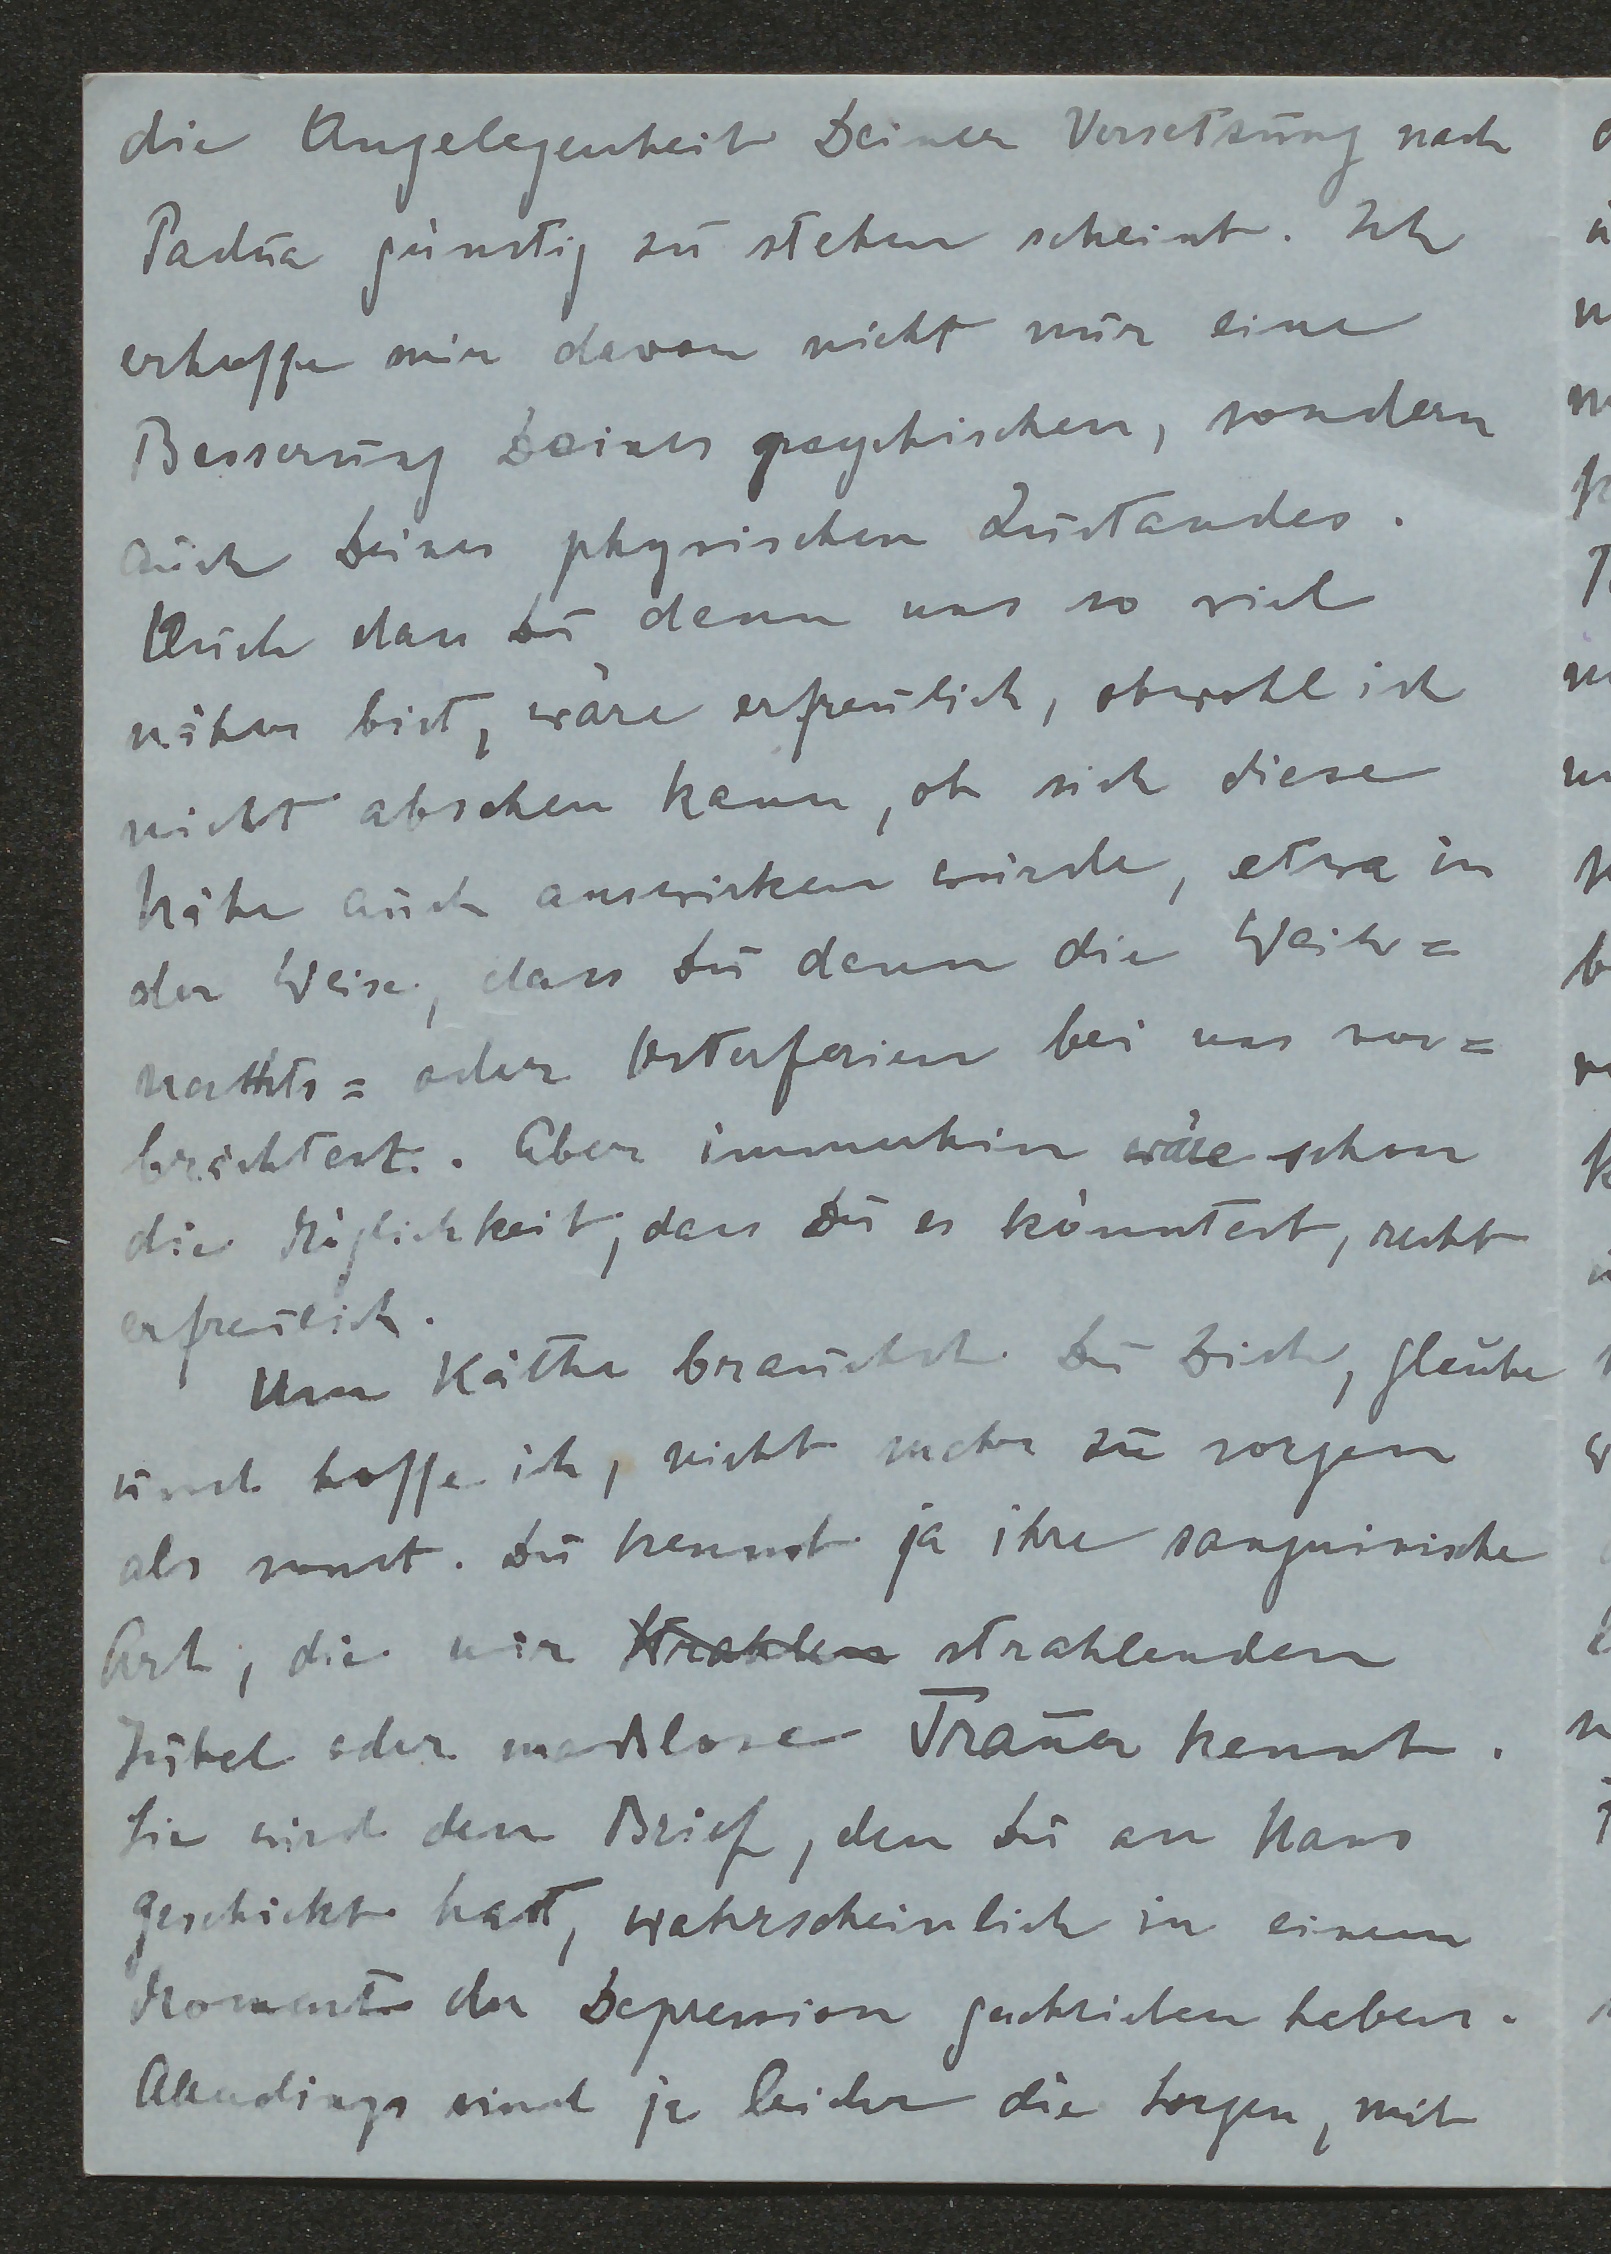 die Angelegenheit Deiner Versetzung nach
Padua günstig zu stehen scheint. Ich
erhoffe mir davon nicht nur eine
Besserung Deines psychischen, sondern
auch Deines physischen Zustandes.
Auch dass Du dann uns so viel
näher bist, wäre erfreulich, obwohl ich
nicht absehen kann, ob sich diese
Nähe auch auswirken würde, etwa in
der Weise, dass Du dann die Weih=
nachts= oder Osterferien bei uns ver=
brächtest. Aber immerhin wäre schon
die Möglichkeit, dass Du es könntest, recht
erfreulich.
Um Käthe brauchst Du Dich, glaube
und hoffe ich, nicht mehr zu sorgen
als sonst. Du kennst ja ihre sanguinische
Art, die nur Strahlen strahlenden
Jubel oder masslose Trauer kennt.
Sie wird den Brief, den Du an Hans
geschickt hast, wahrscheinlich in einem
Momente der Depression geschrieben haben.
Allerdings sind ja leider die Sorgen, mit